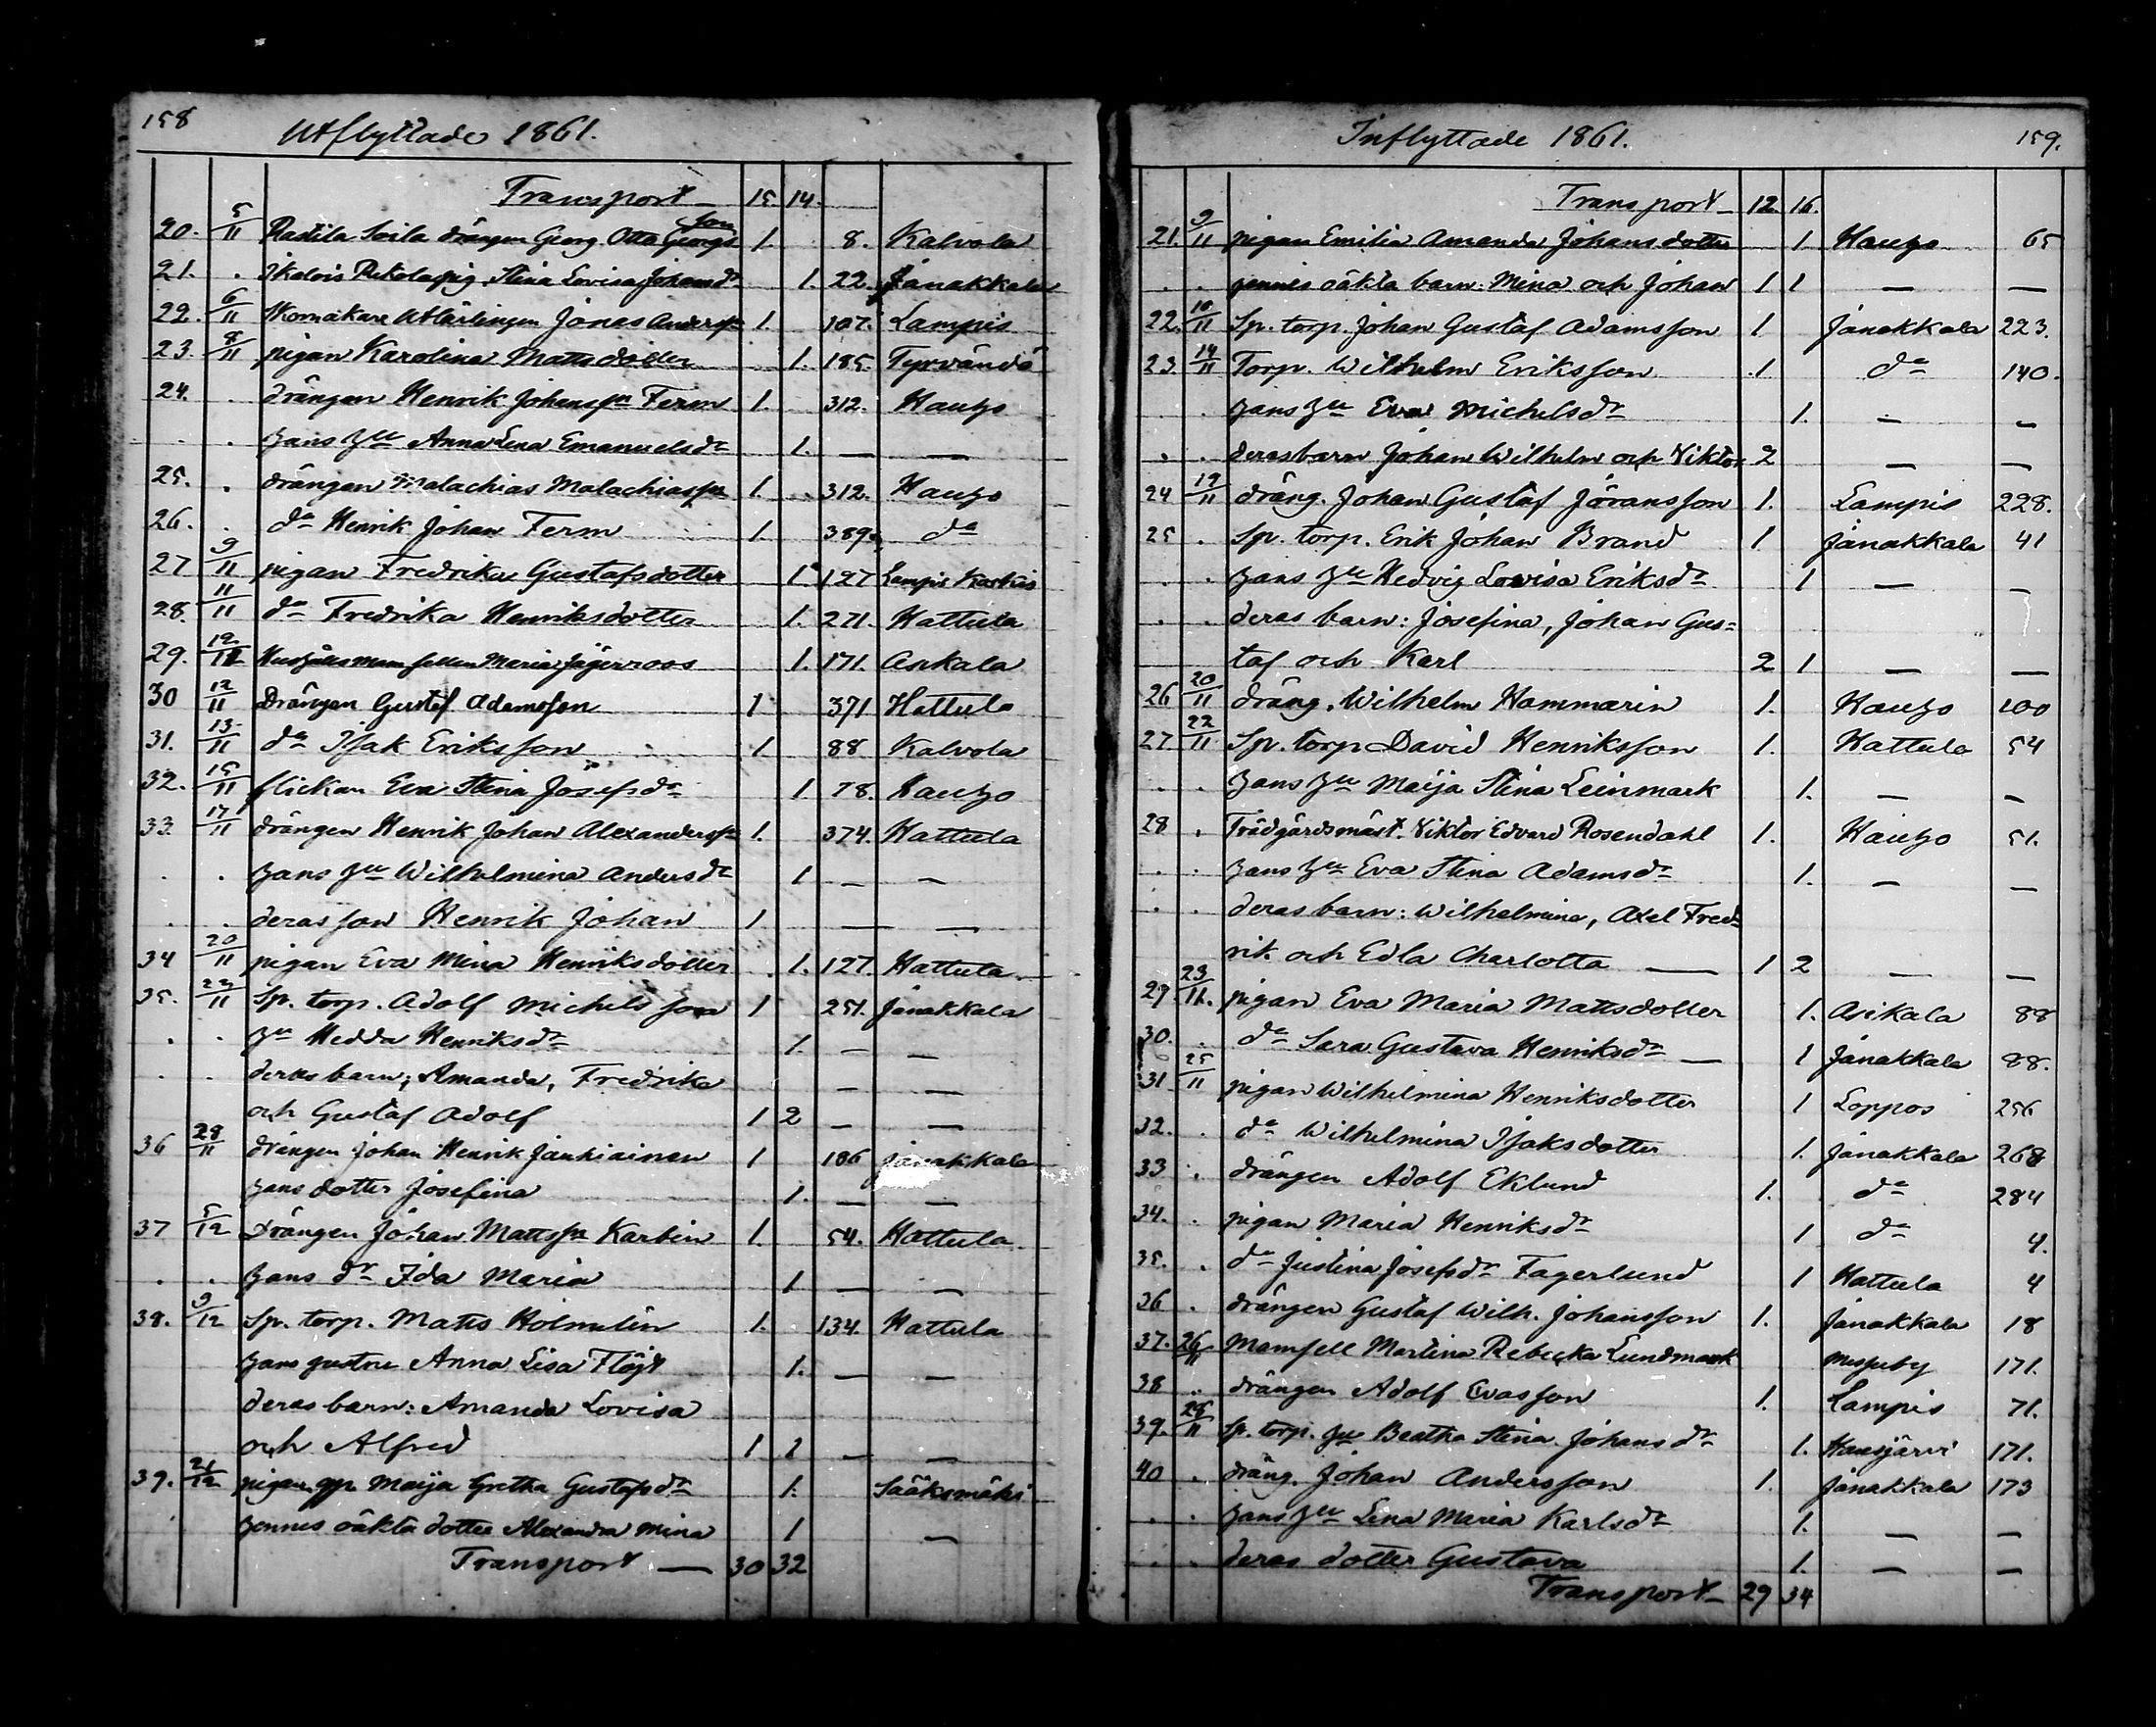 158
Utflyttade 1861.
Transport 15. 14.
20. 5/11 Rastila Soila drängen Georg Otto Georgs son 1. 8. Kalvola
21. . Ikalois pig. Stina Lovisa Johansdr 1. 22. Janakkala
22. 6/11 Skomakare Utlärlingen Jonas Anderssn 1. 107. Lampis
23. 8/11 pigan Karolina Mattsdotter 1. 185. Tyrvändö
24. . drängen Henrik Johanssn Ferm 1. 312. Hauho
. . hans hu Anna Lena Emanuelsdr 1. — —
25. . drängen Malachias Malachiassn 1. 312. Hauho
26. . do Henrik Johan Ferm 1. 389. do
27 9/11 pigan Fredrika Gustafsdotter 1. 127 Lampis Koskis
28. 11/11 do Fredrika Henriksdotter 1. 271. Hattula
29. 12/11 Hushålls mamsellen Maria Jägerroos 1. 171. Asikala
30 12/11 Drängen Gustaf Adamsson 1 371 Hattula
31. 13/11 do Isak Eriksson 1. 88 Kalvola
32. 15/11 flickan Eva Stina Josefsdr 1. 78. Hauho
33. 17/11 drängen Henrik Johan Alexanderssn 1. 374. Hattula
. . hans hu Wilhelmina Andersdr 1 — —
. . deras son Henrik Johan 1 — —
34 20/11 pigan Eva Mina Henriksdotter 1. 127. Hattula
35. 22/11 Sp. torp. Adolf Michelsson 1 251. Janakkala
. . hu Hedda Henriksdr 1. — —
. . deras barn; Amanda, Fredrika — —
och Gustaf Adolf 1 2 — —
36 28/11 drängen Johan Henrik Jankiainen 1 186 Janakkala
hans dotter Josefina 1. — —
37 5/12 Drängen Johan Mattssn Karbin 1. 54. Hattula
. . hans dr Ida Maria 1 — —
38. 9/12 Sp. torp. Matts Holmlin 1. 134. Hattula
hans hustru Anna Lisa Flöjt 1. — —
deras barn: Amanda Lovisa
och Alfred 1 1 — —
39. 21/12 pigan Maija Gretha Gustafsdr 1. Sääksmäki
hennes oäkta dotter Alexandra Mina 1 —
Transport — 30 32
Inflyttade 1861.
159.
Transport 12. 16.
21. 9/11 pigan Emilia Amanda Johansdotter 1. Hauho 65
. . hennes oäkta barn: Mina och Johan 1 1 — —
22. 10/11 Sp. torp. Johan Gustaf Adamsson 1 Janakkala 223.
23. 14/11 Torp. Wilhelm Eriksson 1 do 140.
. . hans hu Eva Michelsdr 1. — —
. . deras barn Johan Wilhelm och Viktor 2 — —
24 19/11 dräng. Johan Gustaf Jöransson 1. Lampis 228.
25 . Sp. torp. Erik Johan Brand 1 Janakkala 41
. . hans hu Hedvig Lovisa Eriksdr 1 — —
. . deras barn: Josefina, Johan Gus=
taf och Karl 2 1 — —
26 20/11 dräng. Wilhelm Hammarin 1. Hauho 100
27. 22/11 Sp. torp David Henriksson 1. Hattula 54
. . hans hu Maija Stina Leinmark 1. — —
28 . Trädgårdsmäst. Viktor Edvard Rosendahl 1. Hauho 51.
. . hans hu Eva Stina Adamsdr 1. — —
. . deras barn: Wilhelmina, Axel Fred=
rik och Edla Charlotta — 1 2 — —
29. 23/11. pigan Eva Maria Mattsdotter 1. Asikala 88
30. . do Sara Gustava Henriksdr — 1 Janakkala 88.
31 25/11 pigan Wilhelmina Henriksdotter 1 Loppos 256
32. . do Wilhelmina Isaksdotter 1. Janakkala 268
33 . drängen Adolf Eklund 1. do 284
34. . pigan Maria Henriksdr 1 do 4.
35. . do Justina Josefsdr Fagerlund 1 Hattula 4
36 . drängen Gustaf Wilh. Johansson 1. Janakkala 18
37. 26/11 Mamsell Martina Rebecka Lundmark 171.
38 . drängen Adolf Evasson 1. Lampis 71.
39. 28/11 Sp. torp. hu Beatha Stina Johansdr 1. Hausjärvi 171.
40 . dräng. Johan Andersson 1. Janakkala 173
. . hans hu Lena Maria Karlsdr 1. — —
. . deras dotter Gustava 1. — —
Transport 29 34